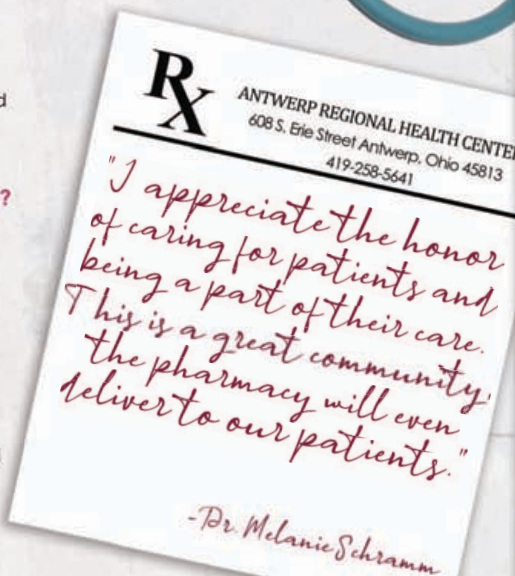 d
?
Rx
ANTWERP REGIONAL HEALTH CENTE
608 S. Erie Street Antwerp, Ohio 45813
419-258-5641
"I appreciate the honor
of caring for patients and
being a part of their care.
This is a great community;
the pharmacy will even
deliver to our patients."
-Dr. Melanie Schramm